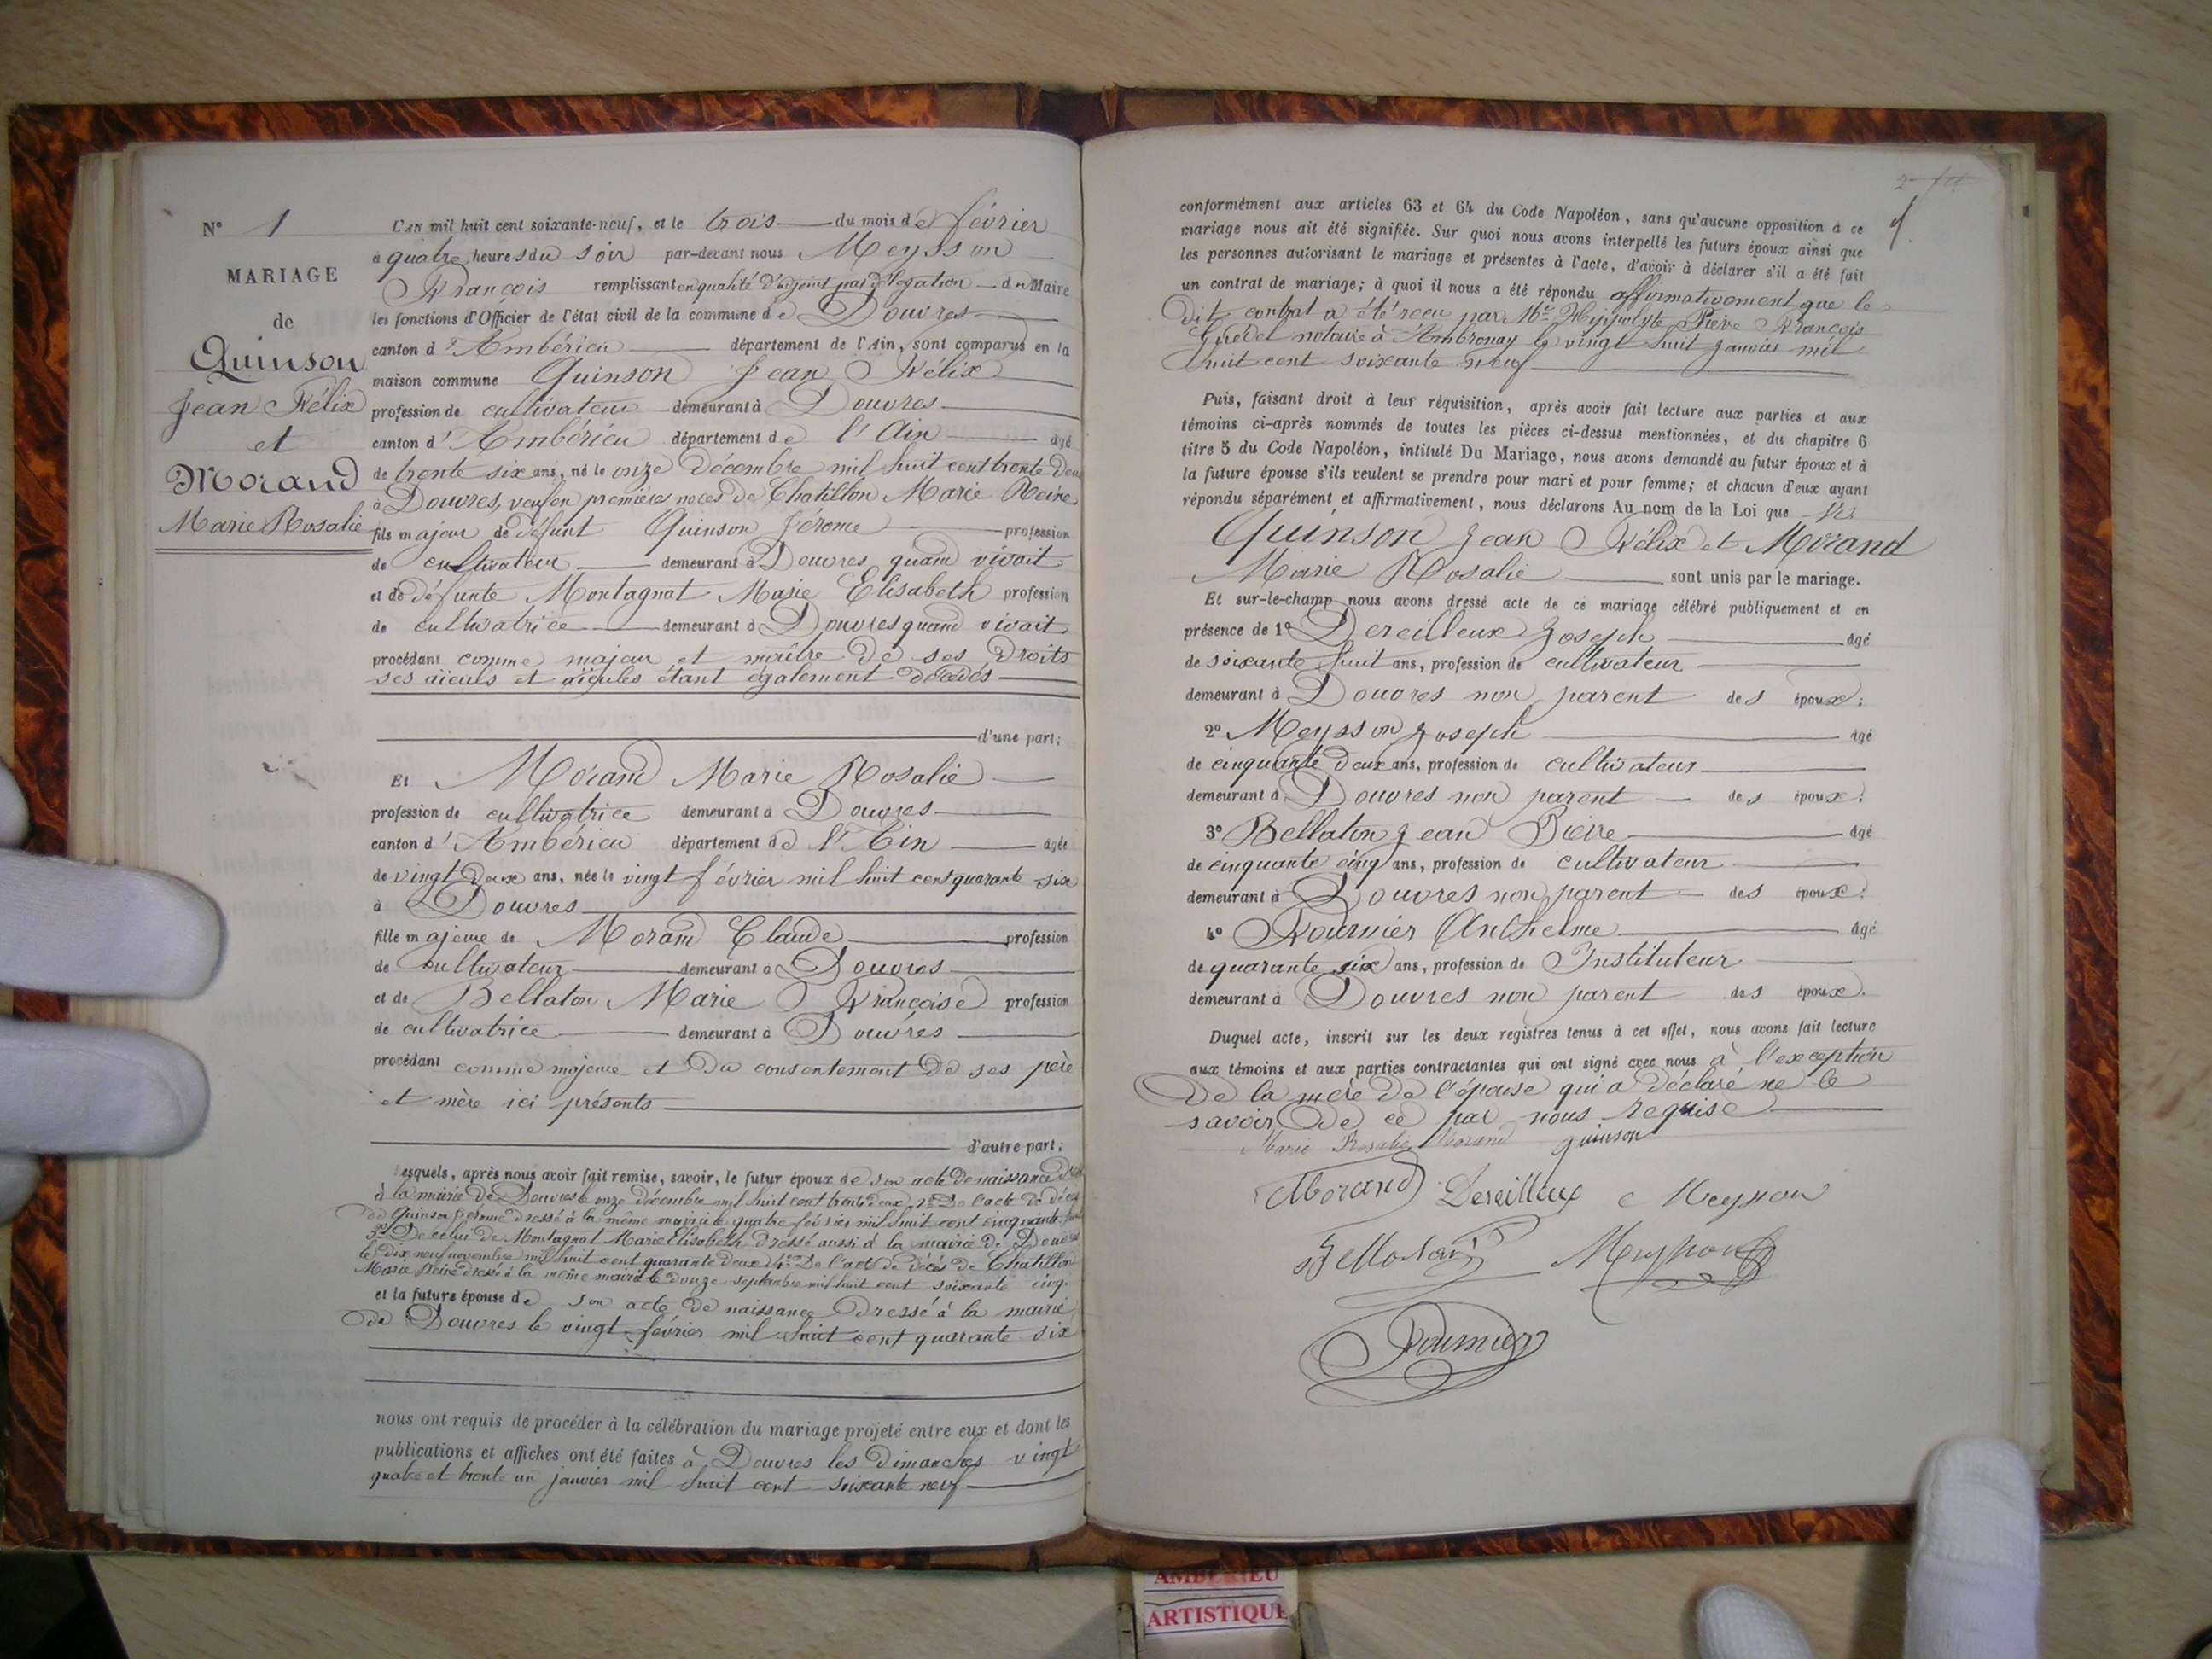 N° 1
MARIAGE
de
Quinson
Jean Félix
et
Morand
Marie Rosalie
L'an mil huit cent soixante-neuf, et le trois du mois de février
à quatre heures du soir par-devant nous Meysson
François remplissant en qualité d'adjoint par délégation du Maire
les fonctions d'Officier de l'état civil de la commune de Douvres
canton d'Ambérieu département de l'Ain, sont comparus en la
maison commune Quinson Jean Félix
profession de cultivateur demeurant à Douvres
canton d'Ambérieu département de l'Ain âgé
de trente six ans, né le onze décembre mil huit cent trente deux
à Douvres, veuf en premières noces de Chatillon Marie Reine
fils majeur de défunt Quinson Jérome profession
de cultivateur demeurant à Douvres quand vivait
et de défunte Montagnat Marie Elisabeth profession
de cultivatrice demeurant à Douvres quand vivait
procédant comme majeur et maître de ses droits
ses aïeuls et aïeules étant également décédés
d'une part;
Et Morand Marie Rosalie
profession de cultivatrice demeurant à Douvres
canton d'Ambérieu département de l'Ain âgée
de vingt deux ans, née le vingt février mil huit cent quarante six
à Douvres
fille majeure de Morand Claude profession
de cultivateur demeurant à Douvres
et de Bellaton Marie Françoise profession
de cultivatrice demeurant à Douvres
procédant comme majeure et du consentement de ses père
et mère ici présents
d'autre part;
Lesquels, après nous avoir fait remise, savoir, le futur époux de son acte de naissance
à la mairie de Douvres le onze décembre mil huit cent trente deux, 2° De l'acte de décès
de Quinson Jérome dressé à la même mairie le quatre février mil huit cent cinquante
3° De celui de Montagnat Marie Elisabeth dressé aussi à la mairie de Douvres
le dix neuf novembre mil huit cent quarante deux 4° De l'acte de décès de Chatillon
Marie Reine dressé à la même mairie le douze septembre mil huit cent soixante cinq.
et la future épouse de son acte de naissance dressé à la mairie
de Douvres le vingt février mil huit cent quarante six
nous ont requis de procéder à la célébration du mariage projeté entre eux et dont les
publications et affiches ont été faites à Douvres les dimanches vingt
quatre et trente un janvier mil huit cent soixante neuf
conformément aux articles 63 et 64 du Code Napoléon, sans qu'aucune opposition à ce
mariage nous ait été signifiée. Sur quoi nous avons interpellé les futurs époux ainsi que
les personnes autorisant le mariage et présentes à l'acte, d'avoir à déclarer s'il a été fait
un contrat de mariage; à quoi il nous a été répondu affirmativement que le
dit contrat a été reçu par Me Hyppolyte Pierre François
notaire à Ambronay le vingt huit janvier mil
huit cent soixante neuf
Puis, faisant droit à leur réquisition, après avoir fait lecture aux parties et aux
témoins ci-après nommés de toutes les pièces ci-dessus mentionnées, et du chapitre 6
titre 5 du Code Napoléon, intitulé Du Mariage, nous avons demandé au futur époux et à
la future épouse s'ils veulent se prendre pour mari et pour femme; et chacun d'eux ayant
répondu séparément et affirmativement, nous déclarons Au nom de la Loi que
Quinson Jean Félix et Morand
Marie Rosalie sont unis par le mariage.
Et sur-le-champ nous avons dressé acte de ce mariage célébré publiquement et en
présence de 1° Dereilleux Joseph âgé
de soixante huit ans, profession de cultivateur
demeurant à Douvres non parent des époux;
2° Meysson Joseph âgé
de cinquante deux ans, profession de cultivateur
demeurant à Douvres non parent des époux;
3° Bellaton Jean Pierre âgé
de cinquante cinq ans, profession de cultivateur
demeurant à Douvres non parent des époux;
4° Fournier Anthelme âgé
de quarante six ans, profession de Instituteur
demeurant à Douvres non parent des époux.
Duquel acte, inscrit sur les deux registres tenus à cet effet, nous avons fait lecture
aux témoins et aux parties contractantes qui ont signé avec nous à l'exception
de la mère de l'épouse qui a déclaré ne le
savoir de ce par nous requise
Marie Rosalie Morand quinson
Morand Dereilleux Meysson
Bellaton Meysson
Fournier
AMBERIEU
ARTISTIQUE